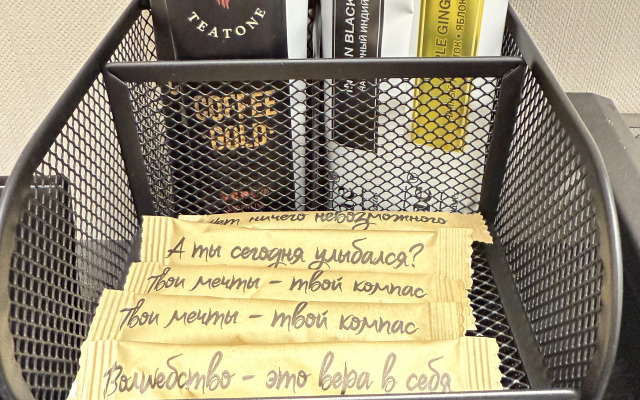 TEATONE
COFFEE
GOLD
N BLACK
РНЫЙ ИНДИЙ
PLE GING
ТОК • ЯБЛОК
ничего невозможного
А ты сегодня улыбался?
Твои мечты – твой компас
Твои мечты – твой компас
Волшебство – это вера в себя